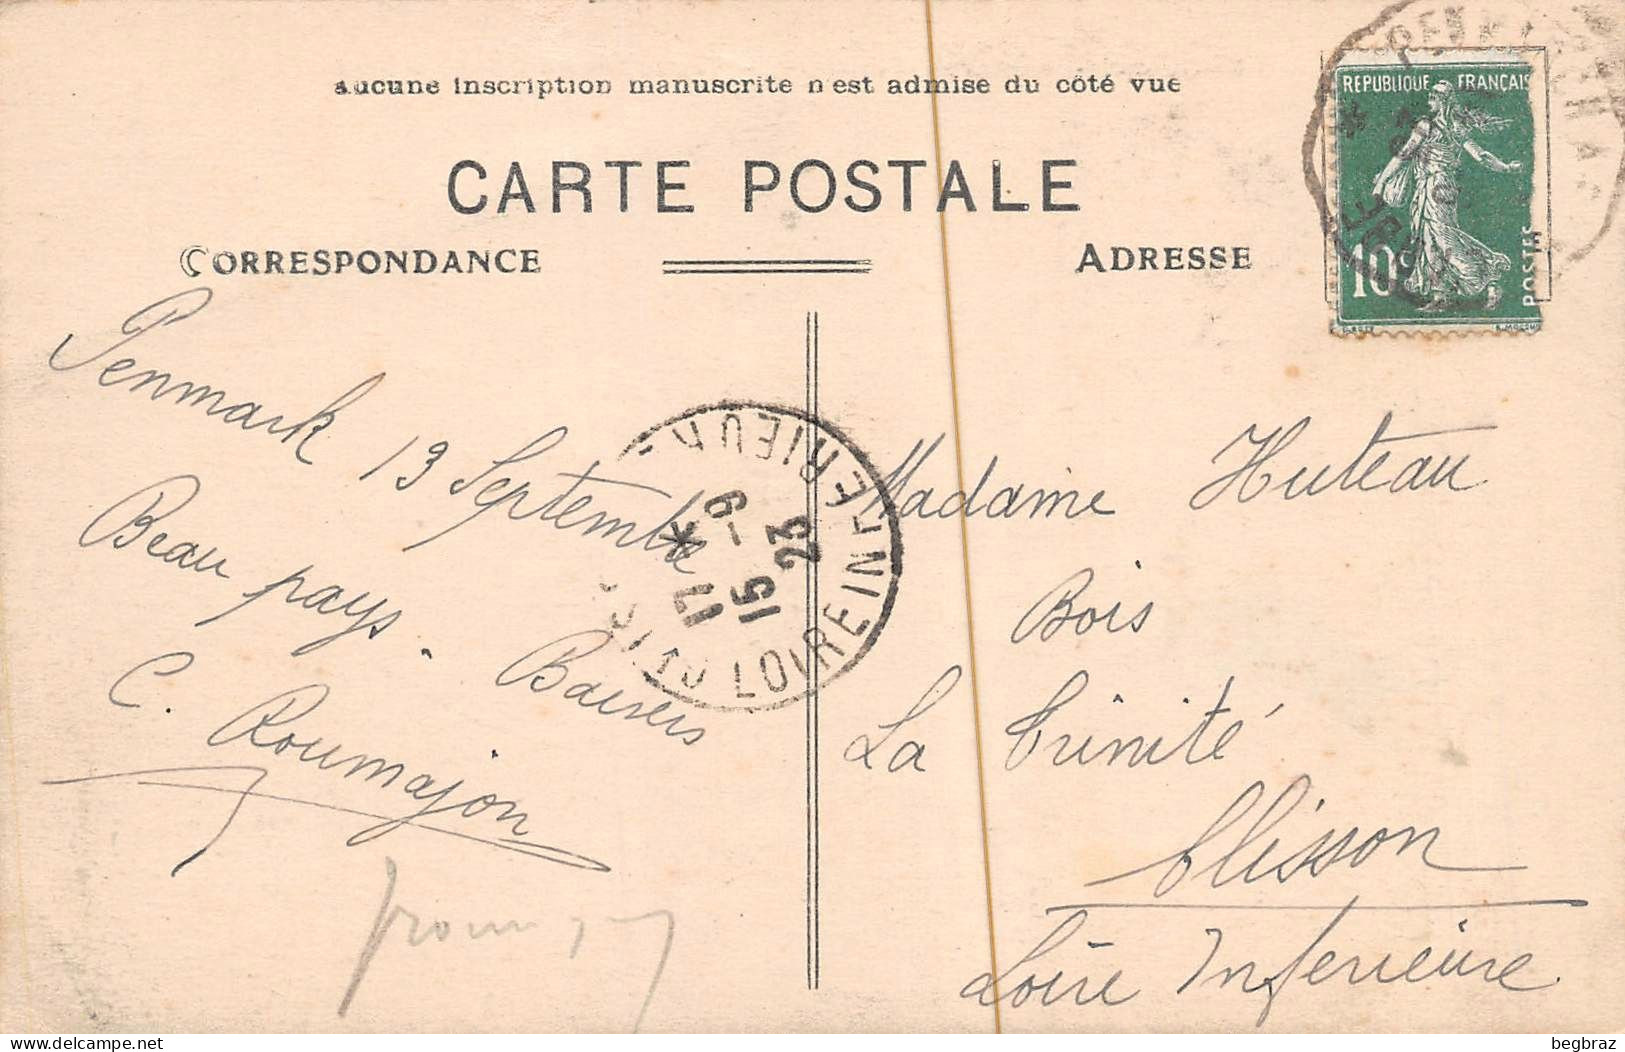 aucune inscription manuscrite n'est admise du côté vue
CARTE POSTALE
CORRESPONDANCE
ADRESSE
REPUBLIQUE FRANÇAISE
10c
POSTES
Penmark 13 Septembre
Beau pays. Baisers
C. Roumajon
17 *
15 -9
23
LOIRE INFERIEURE
Madame Huteau
Bois
La Trinité
Clisson
Loire Inferieure
delcampe.net
begbraz